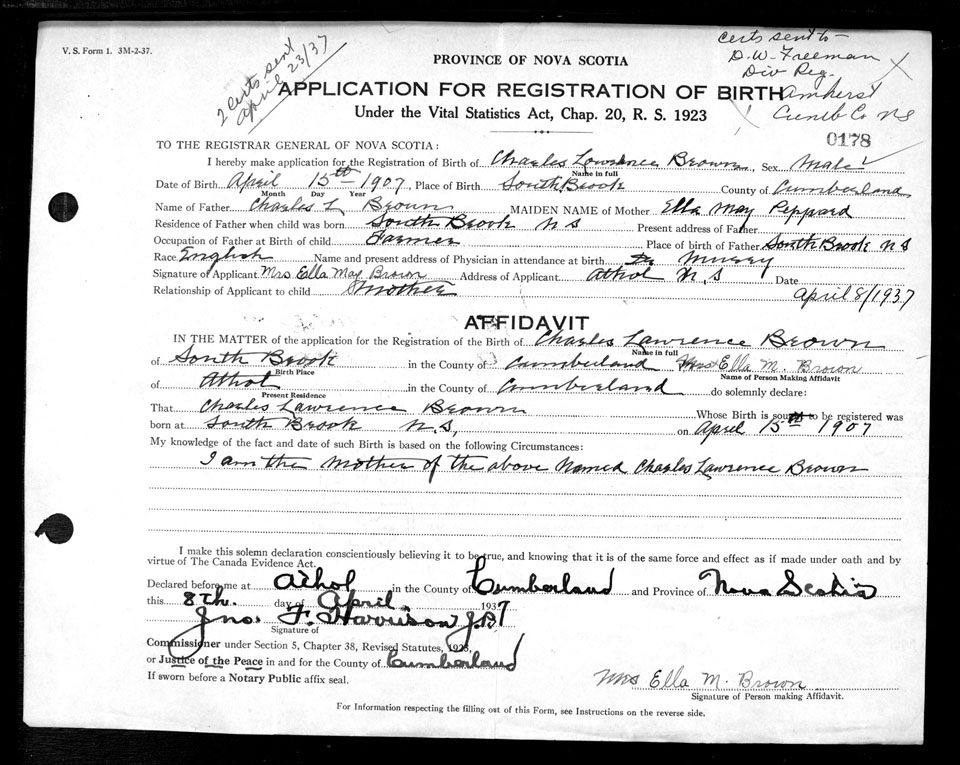 V. S. Form 1. 3M-2-37.
2 certs sent
april 23/37
certs sent to -
D. W. Freeman
Div Reg.
Amherst
Cumb Co NS
PROVINCE OF NOVA SCOTIA
APPLICATION FOR REGISTRATION OF BIRTH
Under the Vital Statistics Act, Chap. 20, R. S. 1923
0178
TO THE REGISTRAR GENERAL OF NOVA SCOTIA:
I hereby make application for the Registration of Birth of Charles Lawrence Brown, Sex Male
Name in full
Date of Birth April 15th 1907, Place of Birth South Brook County of Cumberland
Month Day Year
Name of Father Charles L. Brown MAIDEN NAME of Mother Ella May Peppard
Residence of Father when child was born South Brook N S Present address of Father
Occupation of Father at Birth of child Farmer Place of birth of Father South Brook N S
Race English Name and present address of Physician in attendance at birth Dr
Signature of Applicant Mrs Ella May Brown Address of Applicant Athol N, S Date
Relationship of Applicant to child Mother April 8/1937
AFFIDAVIT
IN THE MATTER of the application for the Registration of the Birth of Charles Lawrence Brown
Name in full
of South Brook in the County of Cumberland Mrs Ella M. Brown
Birth Place Name of Person Making Affidavit
of Athol in the County of Cumberland do solemnly declare:
Present Residence
That Charles Lawrence Brown Whose Birth is sought to be registered was
born at South Brook N.S, on April 15th 1907
My knowledge of the fact and date of such Birth is based on the following Circumstances:
I am the Mother of the above Named Charles Lawrence Brown
I make this solemn declaration conscientiously believing it to be true, and knowing that it is of the same force and effect as if made under oath and by
virtue of The Canada Evidence Act.
Declared before me at Athol in the County of Cumberland and Province of Nova Scotia
this 8th. day of April 1937
Jno. F. Harrison J.P.
Signature of
Commissioner under Section 5, Chapter 38, Revised Statutes, 1923,
or Justice of the Peace in and for the County of Cumberland
If sworn before a Notary Public affix seal.
Mrs Ella M. Brown
Signature of Person making Affidavit.
For Information respecting the filling out of this Form, see Instructions on the reverse side.